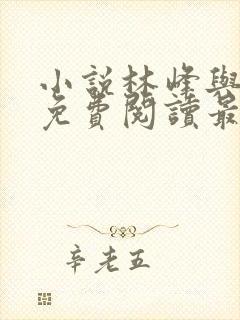 小說林峰與
免費閱讀最
辛老五